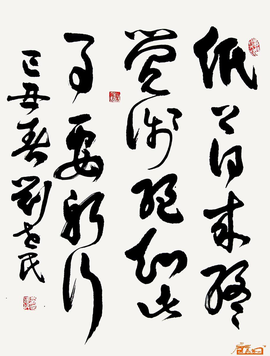 纸上得来终
觉浅绝知此
事要躬行
己丑春刘世民